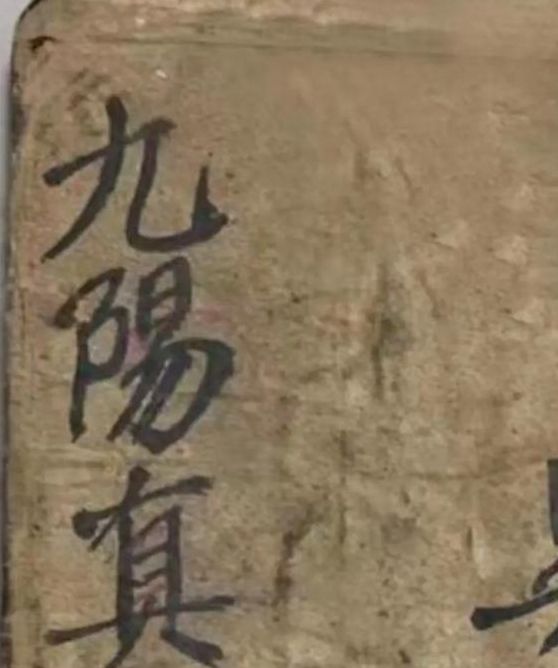 九陽真